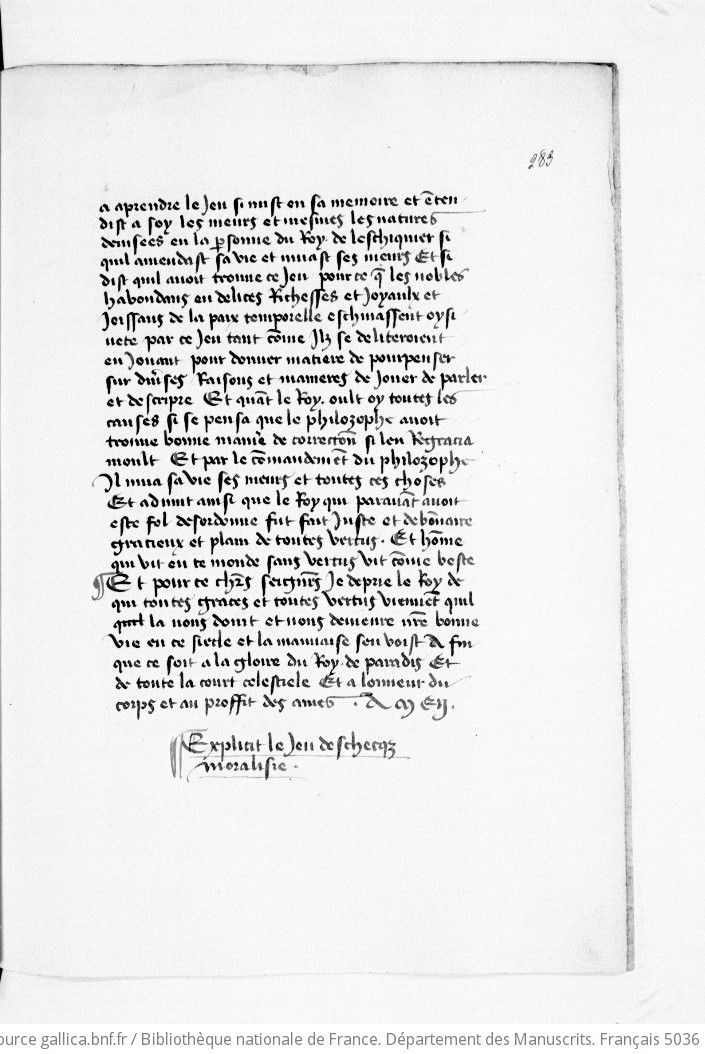 283
a aprendre le Jeu si mist en sa memoire et ẽten
dist a soy les meurs et mesmes les natures
deuisees en la ꝑsonne du Roy de leschiquier si
quil amendast sa vie et muast ses meurs Et si
dist quil auoit trouue ce Jeu pour ce q̃ les nobles
habondans en delices Richesses et Joyaulx et
Joissans de la paix temporelle eschiuassent oysi
uete par ce Jeu tant cõme Ilz se deliteroient
en Jouant pour donner matiere de pourpenser
sur diu̾ses Raisons et manieres de Jouer de parler
et descripre Et quãt le Roy. oult oy toutes les
causes si se pensa que le philozophe auoit
trouue bonne mani̾e de correctõn si len Regracia
moult Et par le cõmandemẽt du philozophe
Il mua sa vie ses meurs et toutes ces choses
Et aduint ainsi que le Roy qui parauãt auoit
este fol desordonne fut fait Juste et debõnaire
gracieux et plain de toutes vertus. Et hõme
qui vit en ce monde sans vertus vit cõme beste
¶ Et pour ce chr̃s seign̾rs Je deprie le Roy de
qui toutes graces et toutes vertus viennẽt quil
la nous doint et nous demeure nr̃e bonne
vie en ce siecle et la mauuaise sen voist A fin
que ce soit a la gloire du Roy de paradis Et
de toute la court celestiele Et a lonneur du
corps et au proffit des ames. A M EN.
¶ Explicit le Jeu deschecqz
moralisie.
ource gallica.bnf.fr / Bibliothèque nationale de France. Département des Manuscrits. Français 5036